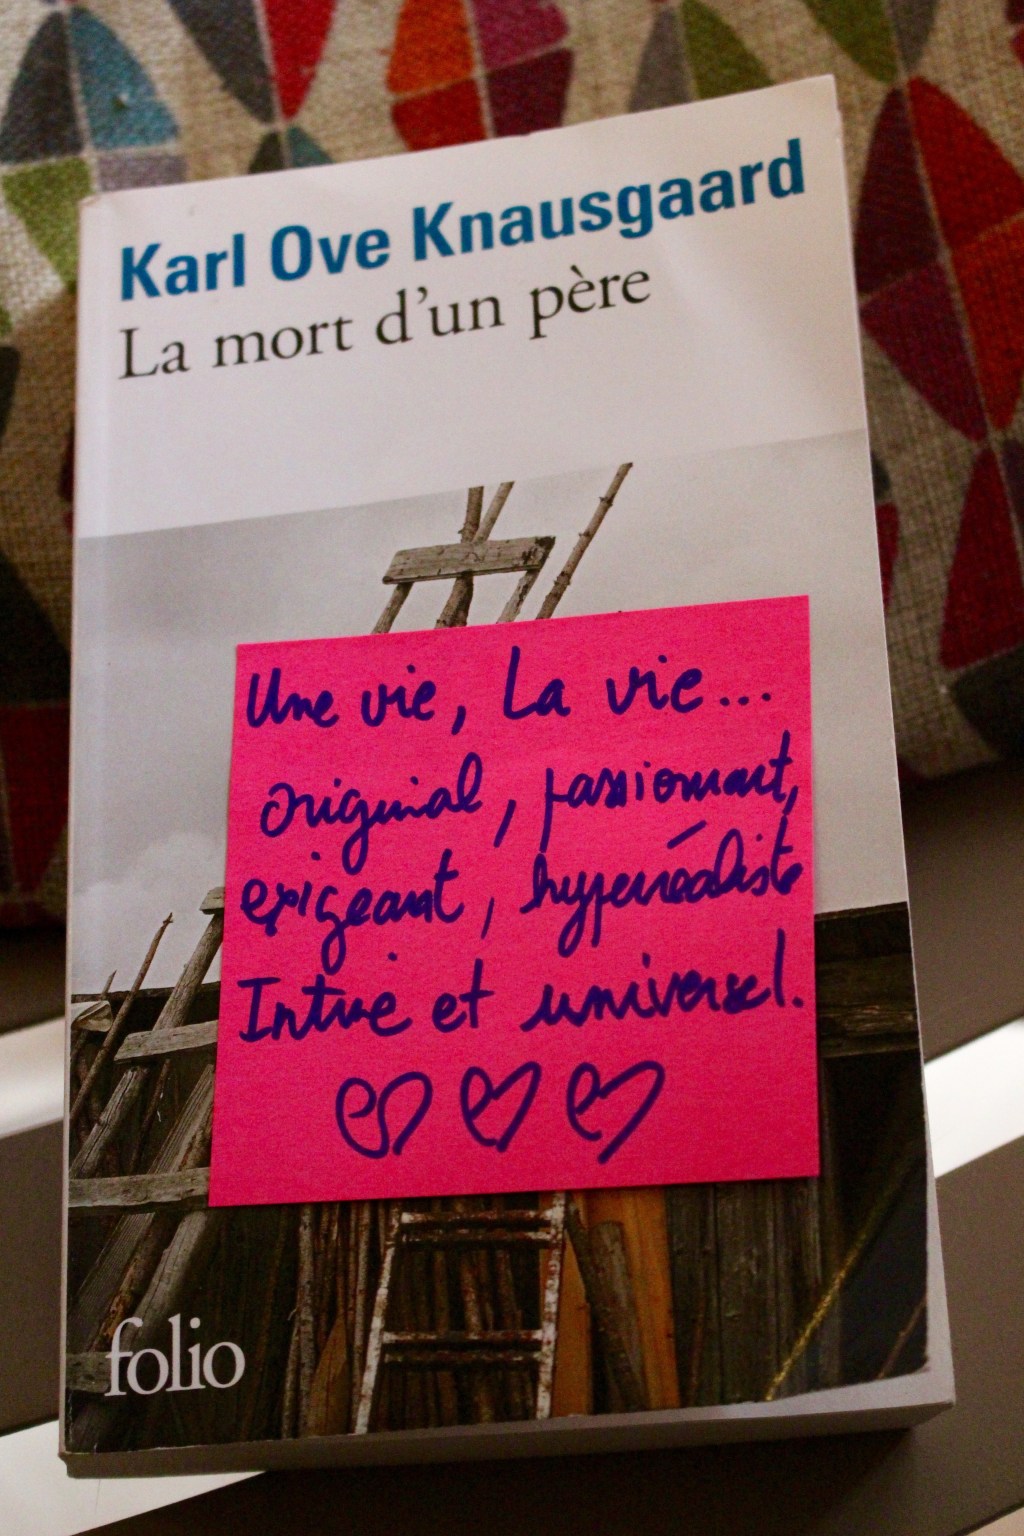 Karl Ove Knausgaard
La mort d'un père
Une vie, La vie...
original, passionnant,
exigeant, hyperréaliste
Intime et universel.
folio